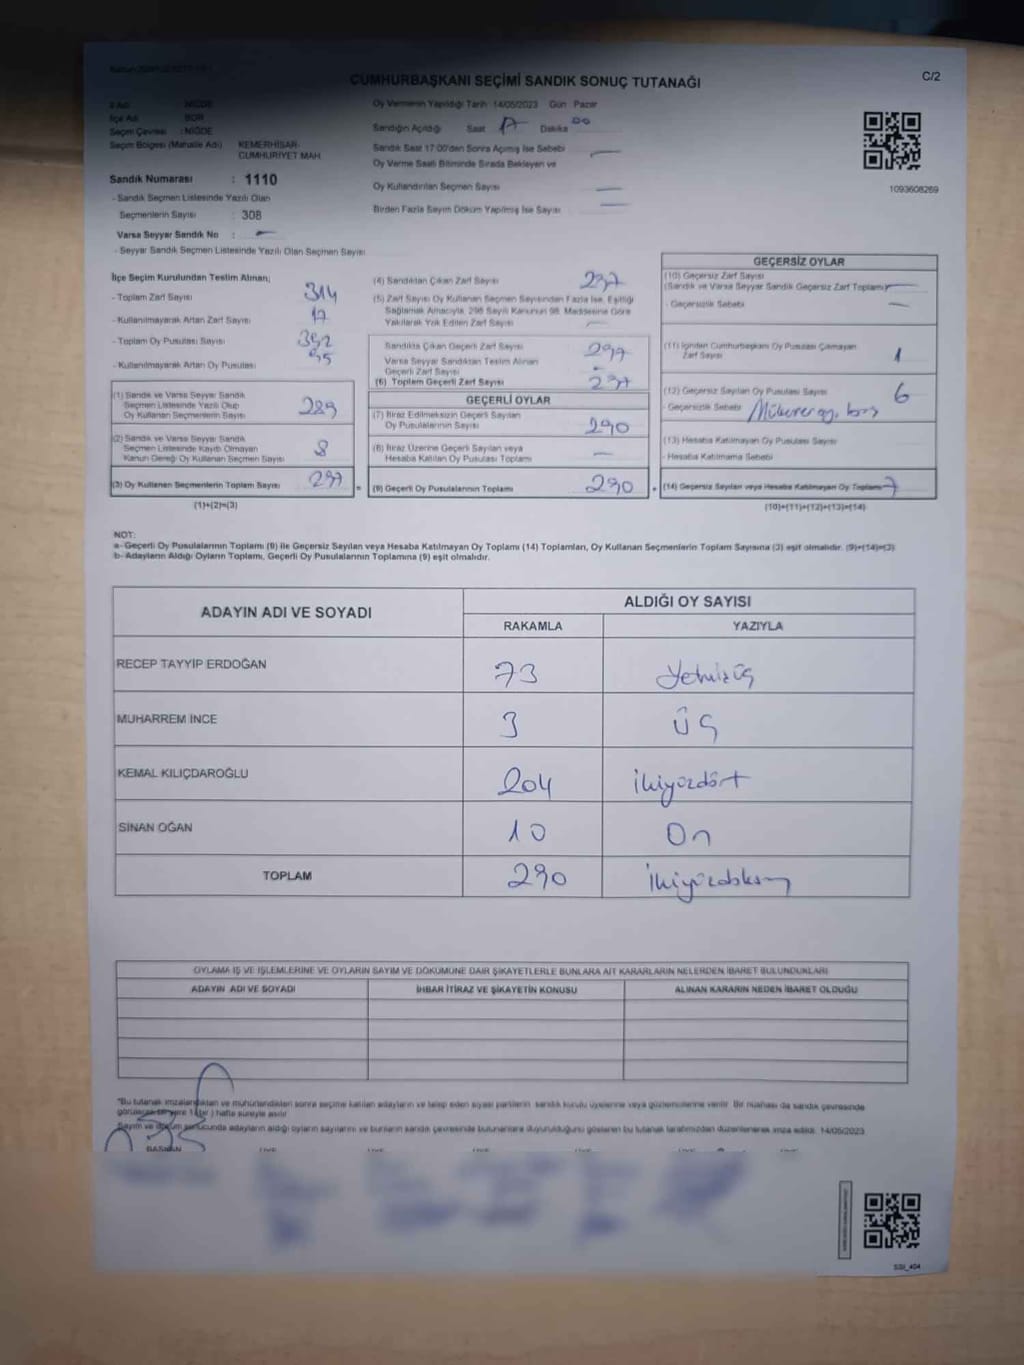 CUMHURBAŞKANI SEÇİMİ SANDIK SONUÇ TUTANAĞI
C/2
İl Adı : NİĞDE
İlçe Adı : BOR
Seçim Çevresi : NİĞDE
Seçim Bölgesi (Mahalle Adı) KEMERHİSAR-
CUMHURİYET MAH.
Sandık Numarası : 1110
- Sandık Seçmen Listesinde Yazılı Olan
Seçmenlerin Sayısı : 308
Varsa Seyyar Sandık No : -
- Seyyar Sandık Seçmen Listesinde Yazılı Olan Seçmen Sayısı
Oy Vermenin Yapıldığı Tarih 14/05/2023 Gün Pazar
Sandığın Açıldığı Saat 17 Dakika 00
Sandık Saat 17:00'den Sonra Açımış İse Sebebi -
Oy Verme Saati Bitiminde Sırada Bekleyen ve
Oy Kullandırılan Seçmen Sayısı -
Birden Fazla Sayım Döküm Yapılmış İse Sayısı -
1093608269
İlçe Seçim Kurulundan Teslim Alınan;
- Toplam Zarf Sayısı 314
- Kullanılmayarak Artan Zarf Sayısı 17
- Toplam Oy Pusulası Sayısı
- Kullanılmayarak Artan Oy Pusulası
(1) Sandık ve Varsa Seyyar Sandık
Seçmen Listesinde Yazılı Olup
Oy Kullanan Seçmenlerin Sayısı 289
(2) Sandık ve Varsa Seyyar Sandık
Seçmen Listesinde Kayıtlı Olmayan
Kanun Gereği Oy Kullanan Seçmen Sayısı 8
(3) Oy Kullanan Seçmenlerin Toplam Sayısı 297
(1)+(2)=(3)
(4) Sandıktan Çıkan Zarf Sayısı 297
(5) Zarf Sayısı Oy Kullanan Seçmen Sayısından Fazla İse, Eşitliği
Sağlamak Amacıyla, 298 Sayılı Kanunun 98. Maddesine Göre
Yakılarak Yok Edilen Zarf Sayısı -
Sandıkta Çıkan Geçerli Zarf Sayısı 297
Varsa Seyyar Sandıktan Teslim Alınan
Geçerli Zarf Sayısı -
(6) Toplam Geçerli Zarf Sayısı 297
GEÇERLİ OYLAR
(7) İtiraz Edilmeksizin Geçerli Sayılan
Oy Pusulalarının Sayısı 290
(8) İtiraz Üzerine Geçerli Sayılan veya
Hesaba Katılan Oy Pusulası Toplamı -
= (9) Geçerli Oy Pusulalarının Toplamı 290
GEÇERSİZ OYLAR
(10) Geçersiz Zarf Sayısı
(Sandık ve Varsa Seyyar Sandık Geçersiz Zarf Toplamı) -
- Geçersizlik Sebebi -
(11) İçinden Cumhurbaşkanı Oy Pusulası Çıkmayan
Zarf Sayısı 1
(12) Geçersiz Sayılan Oy Pusulası Sayısı 6
- Geçersizlik Sebebi
(13) Hesaba Katılmayan Oy Pusulası Sayısı
- Hesaba Katılmama Sebebi
+ (14) Geçersiz Sayılan veya Hesaba Katılmayan Oy Toplamı 7
(10)+(11)+(12)+(13)=(14)
NOT:
a- Geçerli Oy Pusulalarının Toplamı (9) ile Geçersiz Sayılan veya Hesaba Katılmayan Oy Toplamı (14) Toplamları, Oy Kullanan Seçmenlerin Toplam Sayısına (3) eşit olmalıdır. (9)+(14)=(3)
b- Adayların Aldığı Oyların Toplamı, Geçerli Oy Pusulalarının Toplamına (9) eşit olmalıdır.
ADAYIN ADI VE SOYADI
ALDIĞI OY SAYISI
RAKAMLA YAZIYLA
RECEP TAYYİP ERDOĞAN 73 Yetmişüç
MUHARREM İNCE 3 ÜÇ
KEMAL KILIÇDAROĞLU 204 İkiyüzdört
SİNAN OĞAN 10 On
TOPLAM 290 İkiyüzdoksan
OYLAMA İŞ VE İŞLEMLERİNE VE OYLARIN SAYIM VE DÖKÜMÜNE DAİR ŞİKAYETLERLE BUNLARA AİT KARARLARIN NELERDEN İBARET BULUNDUKLARI
ADAYIN ADI VE SOYADI İHBAR İTİRAZ VE ŞİKAYETİN KONUSU ALINAN KARARIN NEDEN İBARET OLDUĞU
"Bu tutanak imzalandıktan ve mühürlendikten sonra seçime katılan adayların ve talep eden siyasi partilerin sandık kurulu üyelerine veya gözlemcilerine verilir. Bir nüshası da sandık çevresinde
hafta süreyle asılır
Sayım ve döküm sonucunda adayların aldığı oyların sayılarını ve bunların sandık çevresinde bulunanlara duyurulduğunu gösteren bu tutanak tarafımızdan düzenlenerek imza edildi. 14/05/2023
BAŞKAN
SSI_404